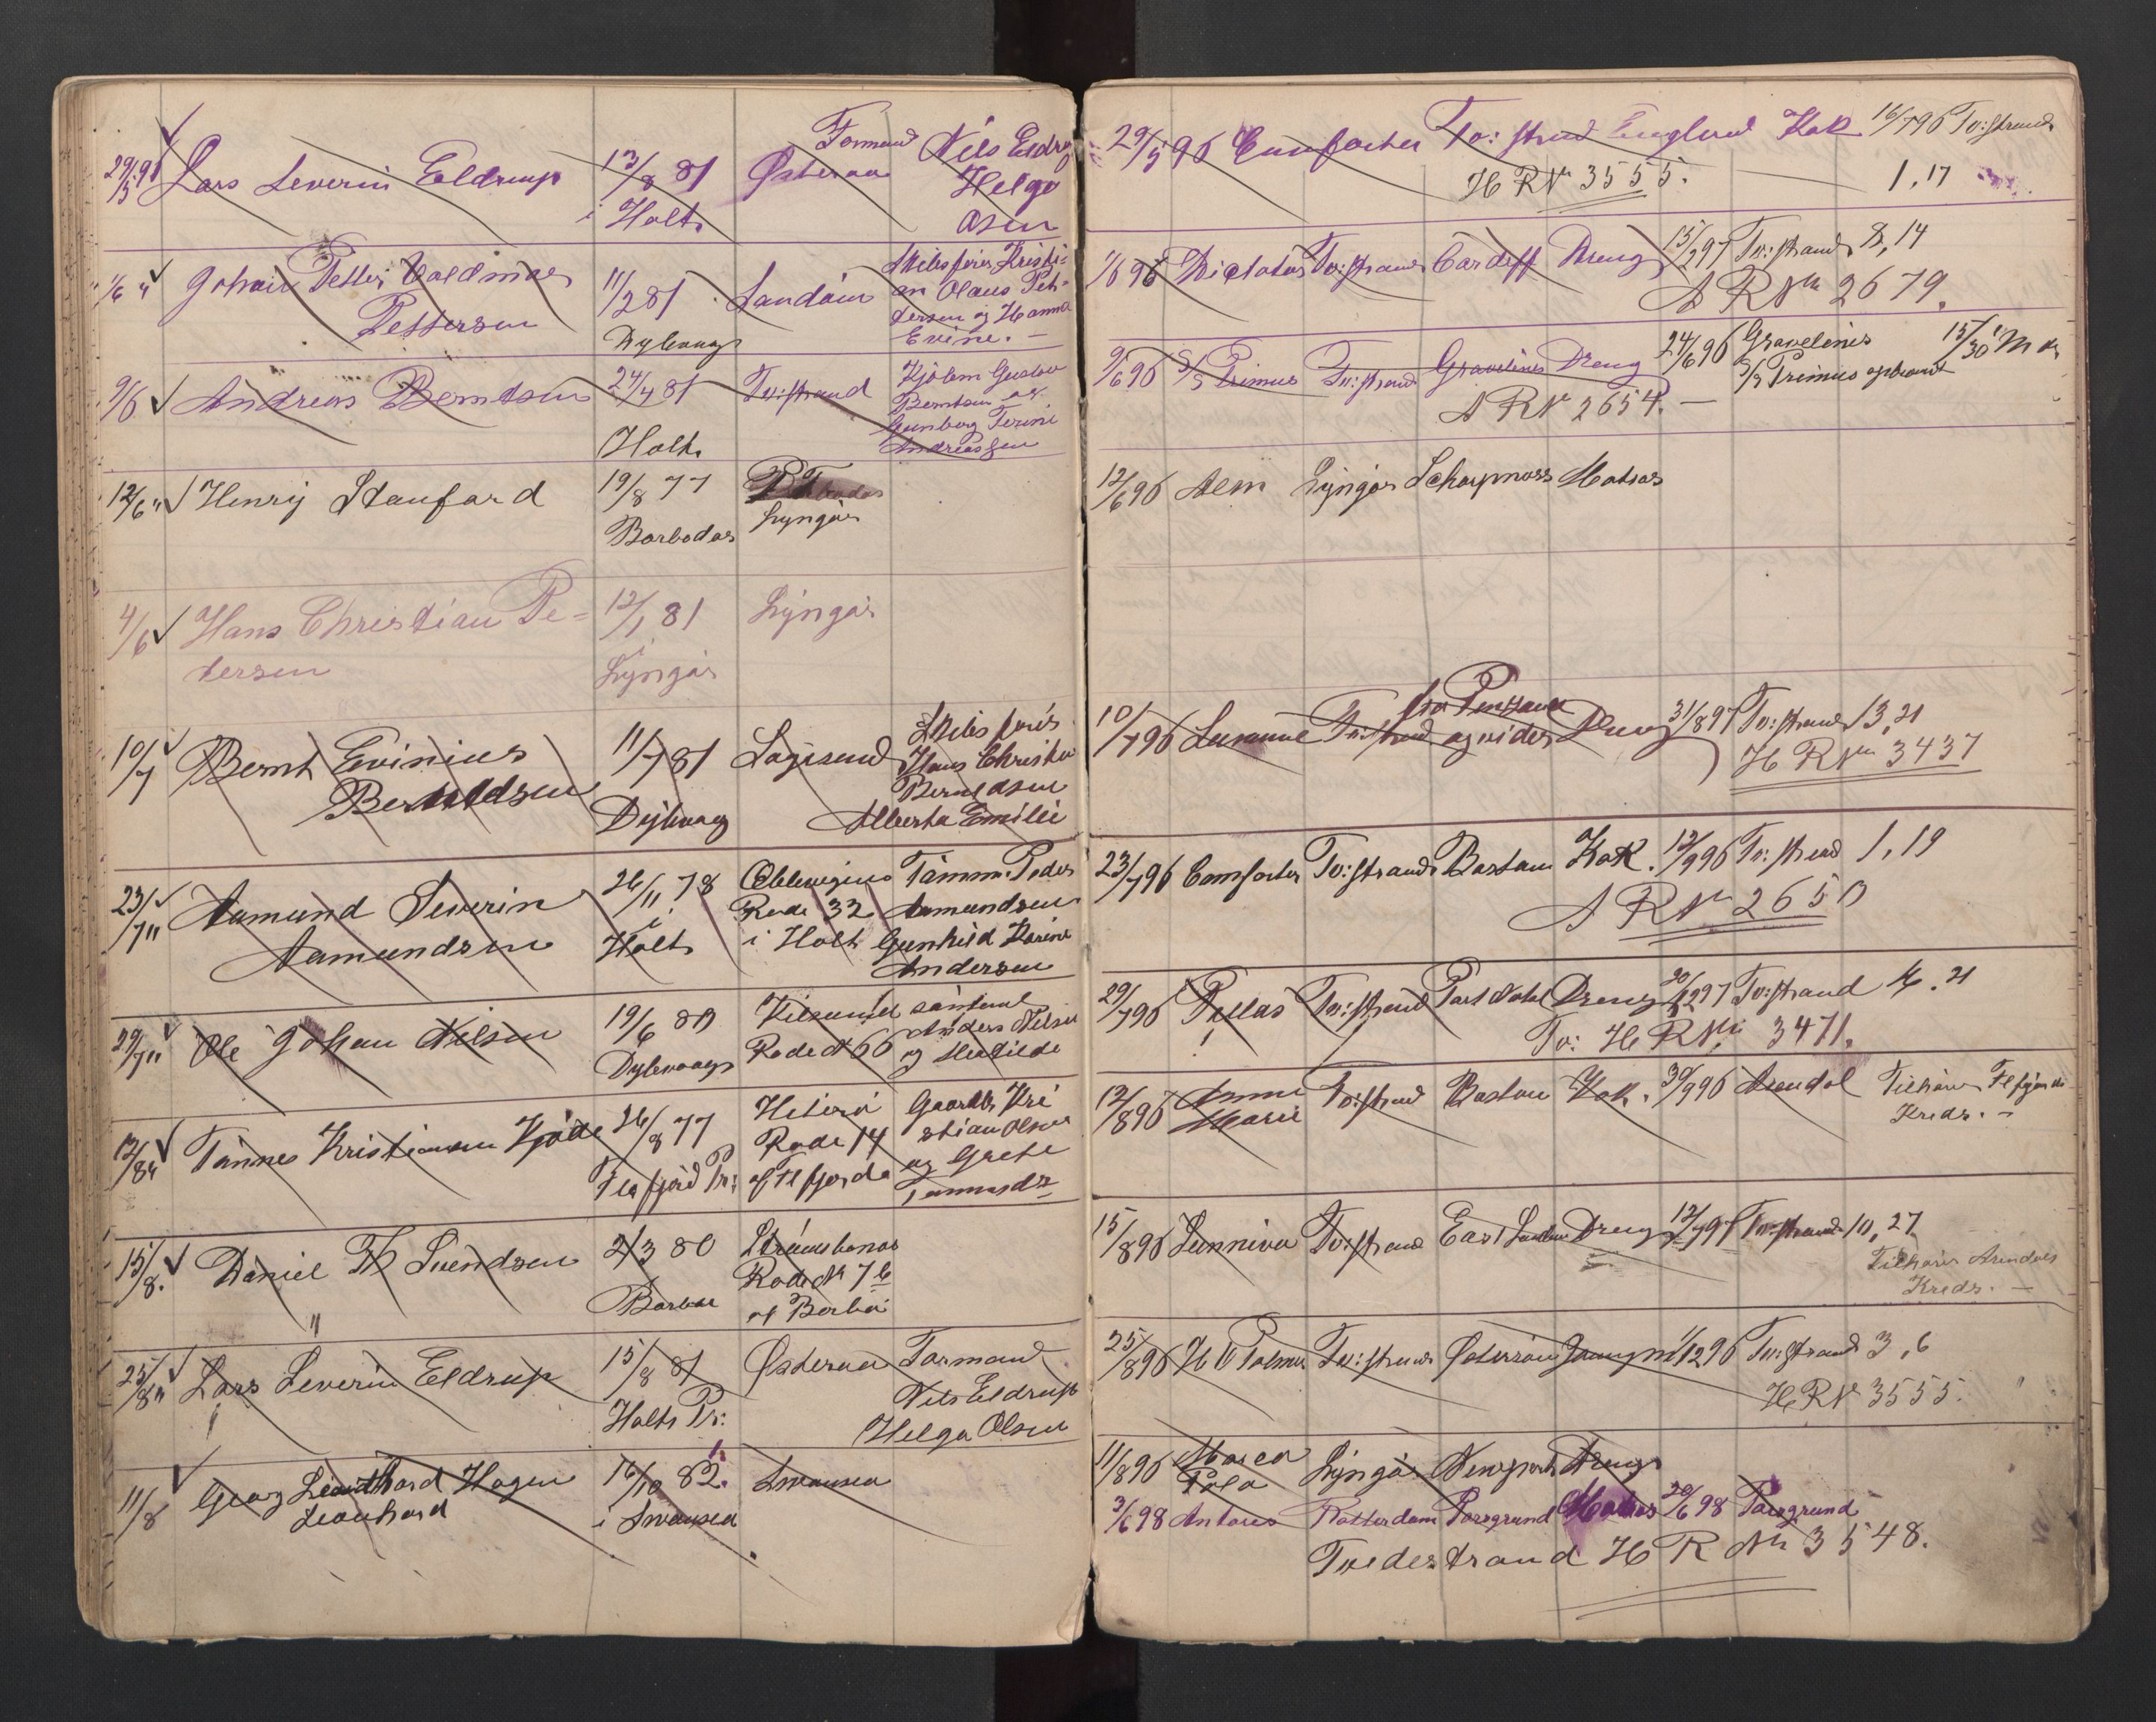 29/5 96 Lars Severin Eldrup 13/8 81 i Holt Østeraa Formand Nils Eldrup Helga Olsen
1/6 " Johan Petter Valdmar Pettersen 11/2 81 Dybvaag Sandøien Skibsfører Kristian Olaus Pettersen og Hanna Evine.
9/6 Andreas Berntsen 24/4 81 Holt Tv:strand Gustav Berntsen og Gunborg Andreassen
12/6 " Henry Staufard 19/8 77 Barbados Lyngør
4/6 Hans Christian Pedersen 12/1 81 Lyngør Lyngør
10/7 Bernt Evinius Berntdsen 11/7 81 Dybvaag Lagesund Skibsfører Hans Christian Alberta Emilie
23/7 " Aamund Severin Aamundsen 26/11 78 i Holt Rode 32 i Holt Tømm. Peder Aamundsen Gunhild Karine Andersen
29/7 " Ole Johan Nilsen 19/6 80 Dybvaag Kilsund Rode No 66 Anders Nilsen og Mathilde
12/8 " Tønnes Kristiansen 26/8 77 Hiterø Rode 14 af Flfjorde Gaardb. Kristian Olsen og Grete
15/8. Daniel Th Svendsen 2/3 80 Barboe Strømsbonæs Rode No 76 af Barbø
"
25/8 " Lars Severin Eldrup 15/8 81 Holts Pr: Østeraa Formand Nils Eldrup Helga Olsen
11/8 Georg Leonhard Hagen Leonhard 16/10 82. i Swansea Swansea
29/5 96 Comforter Tv:strand England Kok 16/7 96 Tv:strand 1,17
H R No 3555.
1/6 96 Dictator Tv:strand Cardiff Dreng 15/2 97 Tv:strand 8,14
A R No 2679.
9/6 96 S/S Primus Tv:strand Gravelines Dreng 24/6 96 Gravelines S/S Primus opbrændt 15/30 M
A R No 2654.
12/6 96 Alm Lyngør Scharpnoss Matros
10/7 96 Tv:strand fra Penzance og vider Dreng 31/8 97 Tv:strand 13,21
H R No 3437
23/7 96 Comforter Tv:strand Bastau Kok. 12/9 96 Tv:strand 1,19
A R No 2650
29/7 96 Pallas Tv:strand Port Natal Dreng 20/12 97 Tv:strand 21
Tv: H R No 3471.
12/8 96 Anne Marie Tv:strand Bastau Kok. 30/9 96 Arendal Tilhører Kreds.
15/8 96 Sunniva Tv:strand East London Dreng 12/7 97 Tv:strand 10,27
Tilhører Arendals Kreds.
25/8 96 H V Palmer Tv:strand Østersøen Jungm 1/12 96 Tv:strand 3,6
H R No 3555.
11/8 96 Marca Pola Lyngør Newport Dreng
3/6 98 Antares Rotterdam Porsgrund Matros 20/6 98 Porsgrund
Tvedestrand H R No 3548.